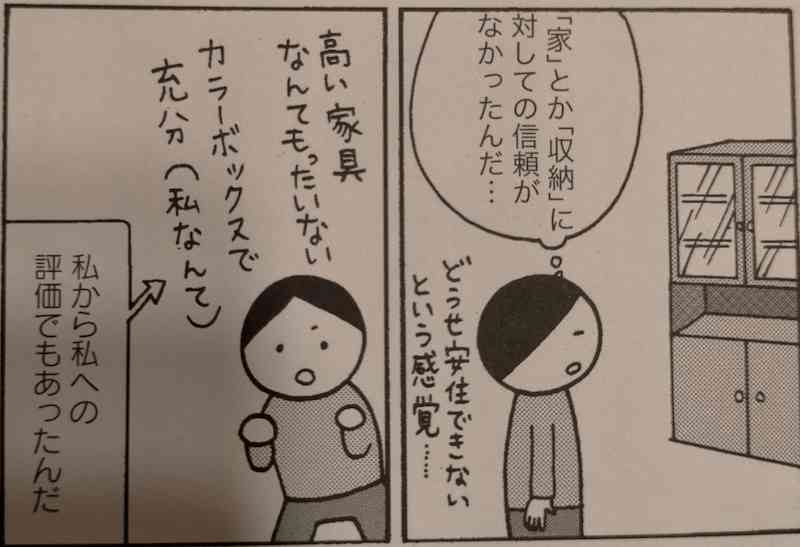 「家」とか「収納」に
対しての信頼が
なかったんだ…
どうせ安住できない
という感覚……
高い家具
なんてもったいない
カラーボックスで
充分(私なんて)
私から私への
評価でもあったんだ